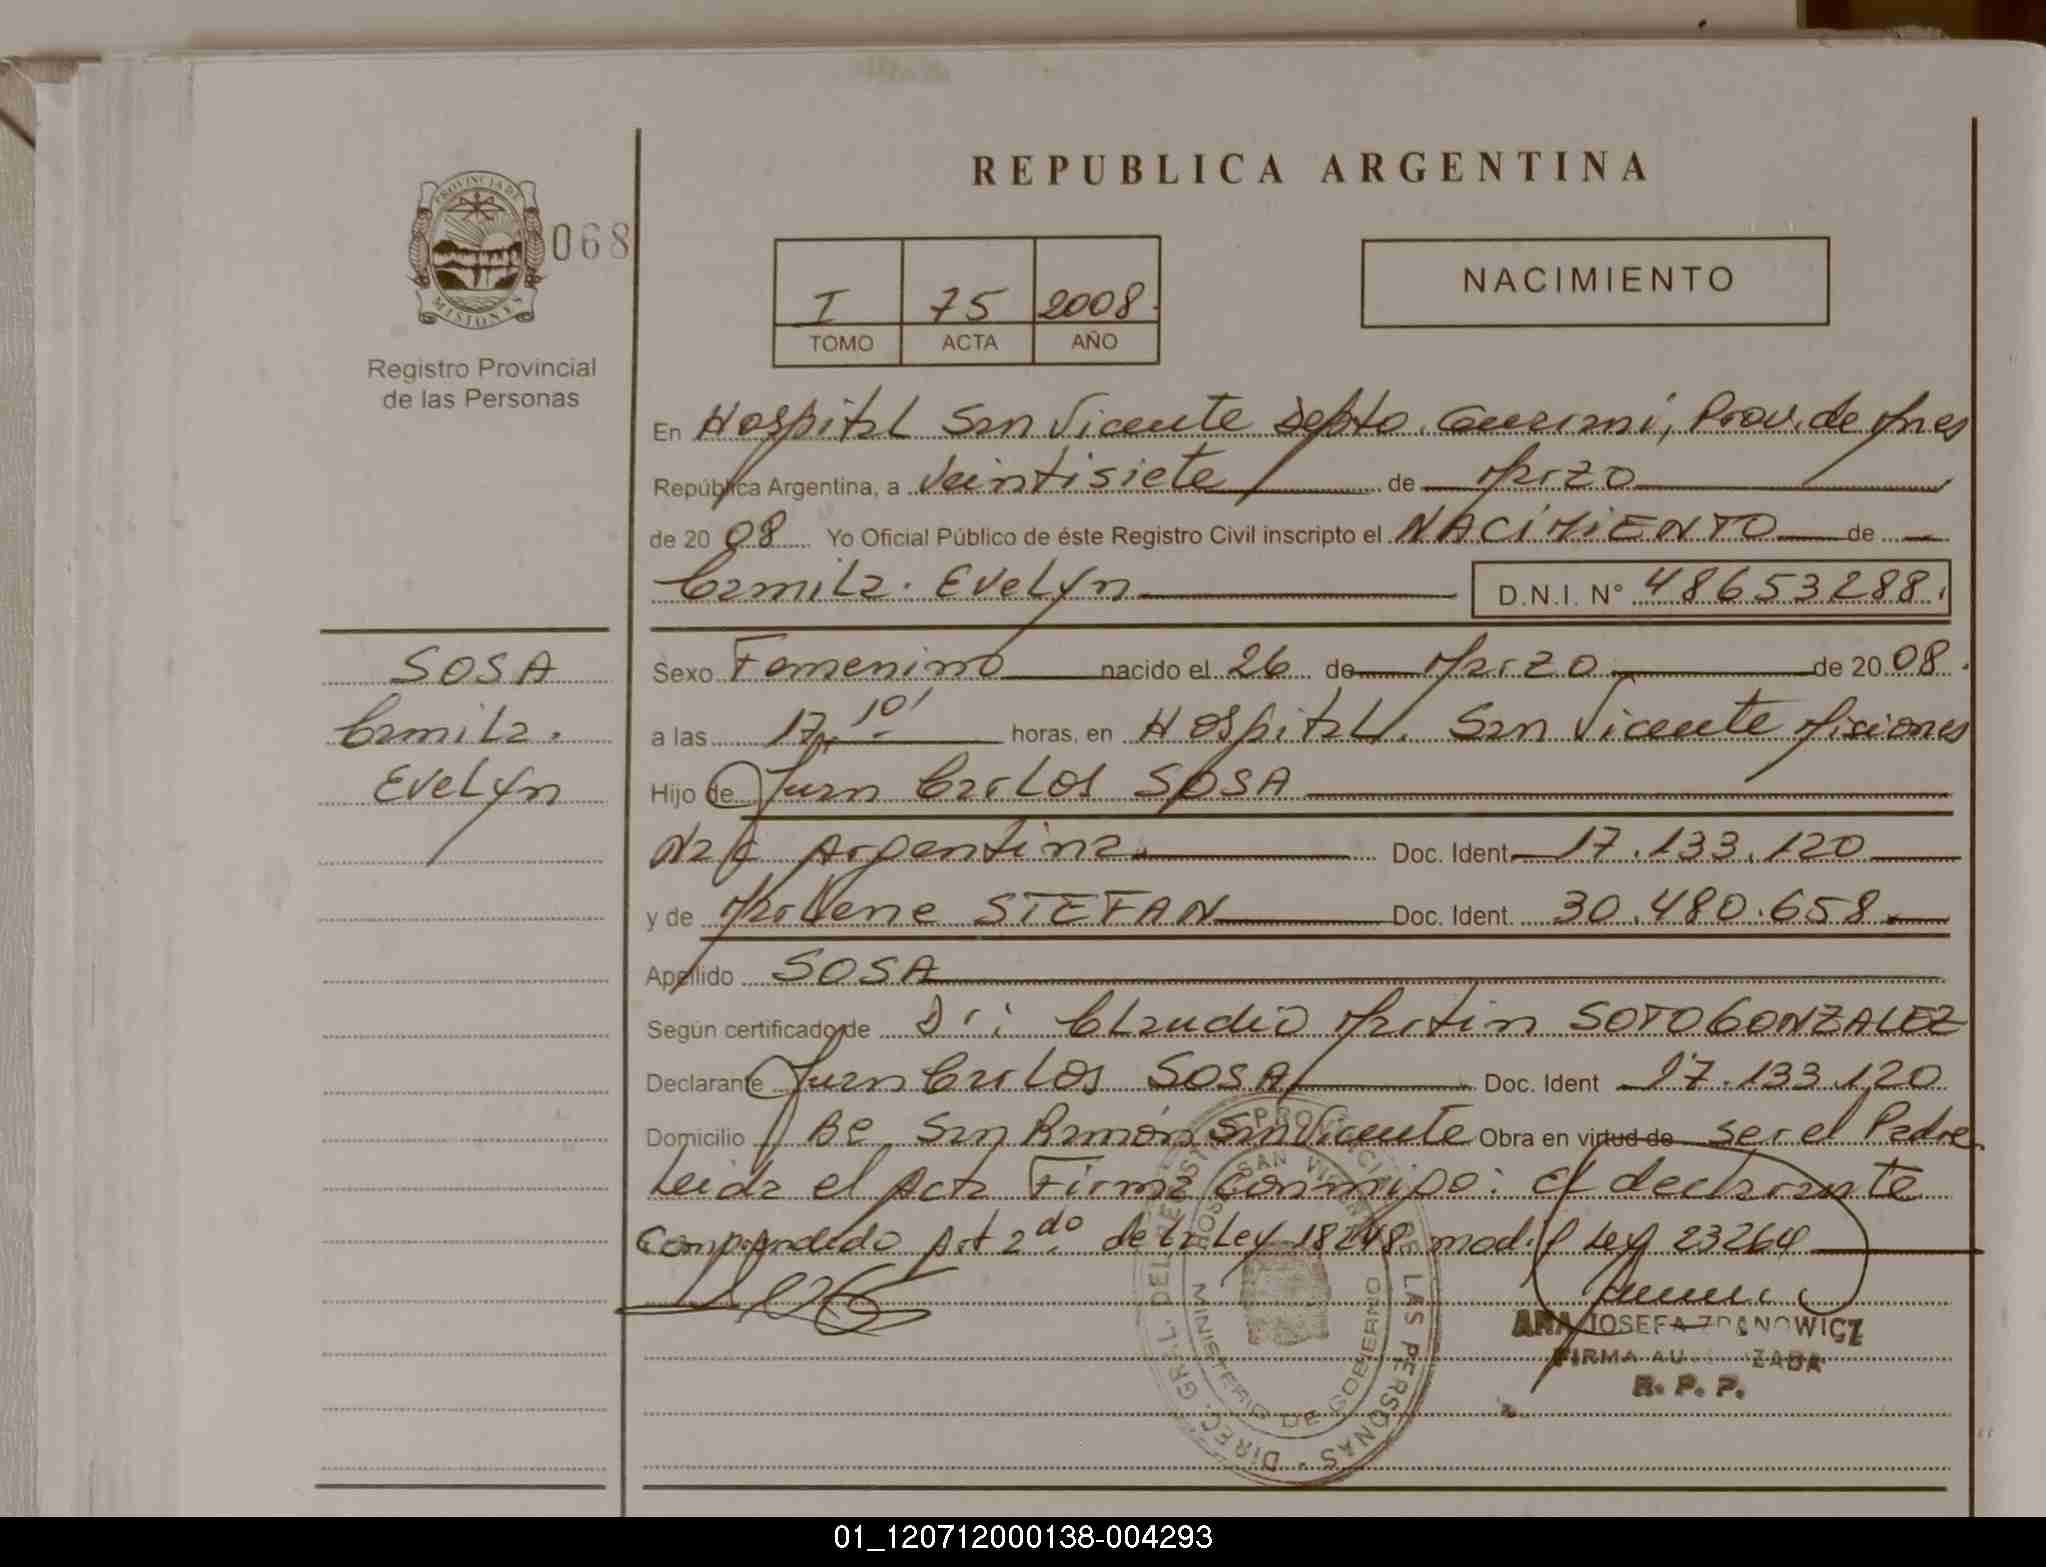 REPUBLICA ARGENTINA
PROVINCIA DE
MISIONES
068
Registro Provincial
de las Personas
I 75 2008.
TOMO ACTA AÑO
NACIMIENTO
En Hospital San Vicente Depto. Guaraní, Prov. de Mnes
República Argentina, a Veintisiete de Marzo
de 20 08 Yo Oficial Público de éste Registro Civil inscripto el NACIMIENTO de
Camila. Evelyn D.N.I. N° 48653288.
SOSA
Camila.
Evelyn
Sexo Femenino nacido el 26 de Marzo de 20 08.
a las 17,10' horas, en Hospital. San Vicente Misiones
Hijo de Juan Carlos SOSA
Argentina. Doc. Ident. 17.133.120
y de Marlene STEFAN Doc. Ident. 30.480.658.
Apellido SOSA
Según certificado de Dr: Claudio Martin SOTO GONZALEZ
Declarante Juan Carlos SOSA Doc. Ident 17.133.120
Domicilio San Ramón San Vicente Obra en virtud de ser el Padre
Leida el Acta Firma conmigo: el declarante
Comprendido Art 2do de la Ley 18248 modif Ley 23264
DIREC. GRAL. DEL REGIST. PROVINCIAL DE LAS PERSONAS
HOSP. SAN VICENTE
MINISTERIO DE GOBIERNO
ANA JOSEFA ZDANOWICZ
FIRMA AUTORIZADA
R. P. P.
01_120712000138-004293